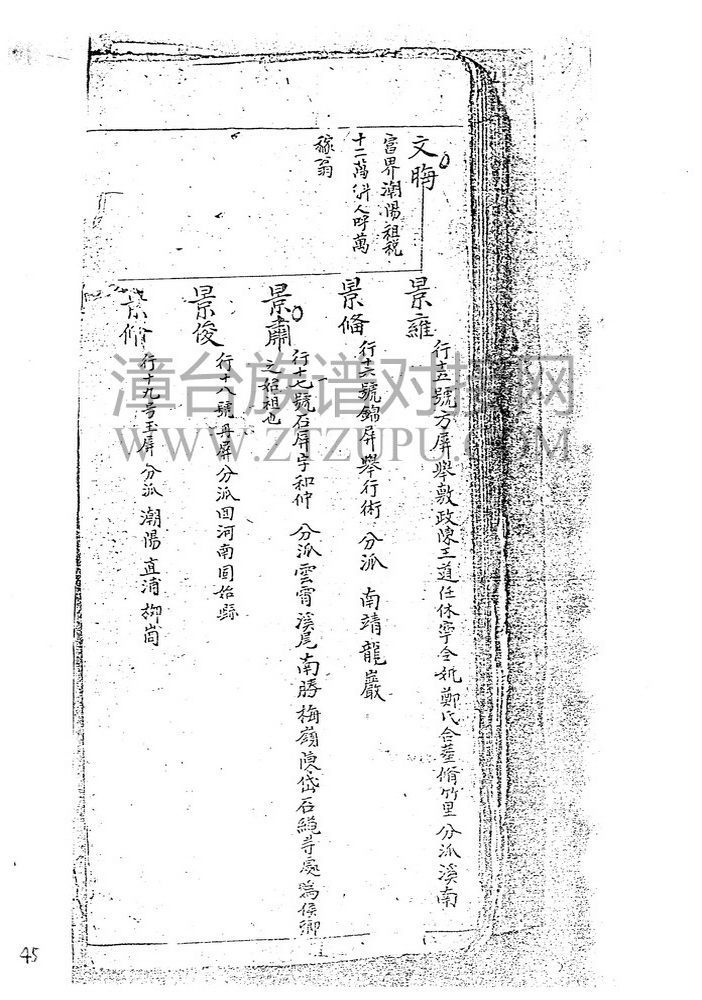 文晦
富界潮陽租税
十二萬餘人呼萬
稼翁
景雍
行十五號方屏舉敦政陳王道任休寧令妣鄭氏合葬脩竹里 分派溪南
景脩
行十六號錦屏舉行術 分派 南靖龍巖
景肅
行十七號石屏字和仲 分派雲霄溪尾南勝梅嶺陳岱石繩等處為侯卿
之始祖也
景俊
行十八號丹屏分派回河南固始縣
行十九号玉屏 分派 潮陽直浦柳崗
漳台族谱对接网
WWW.ZTZUPU.COM
45